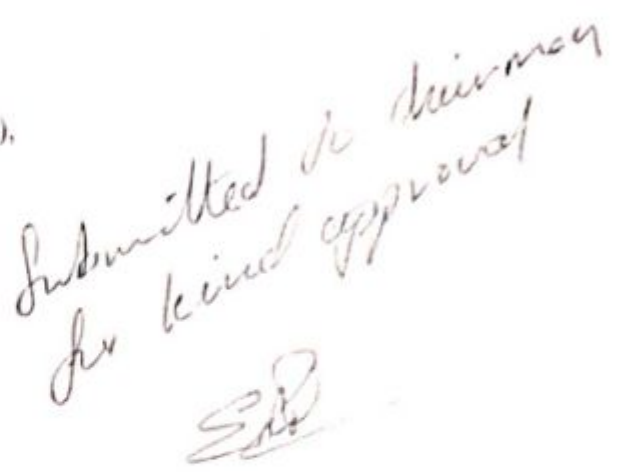 Submitted to chairman
for kind approval